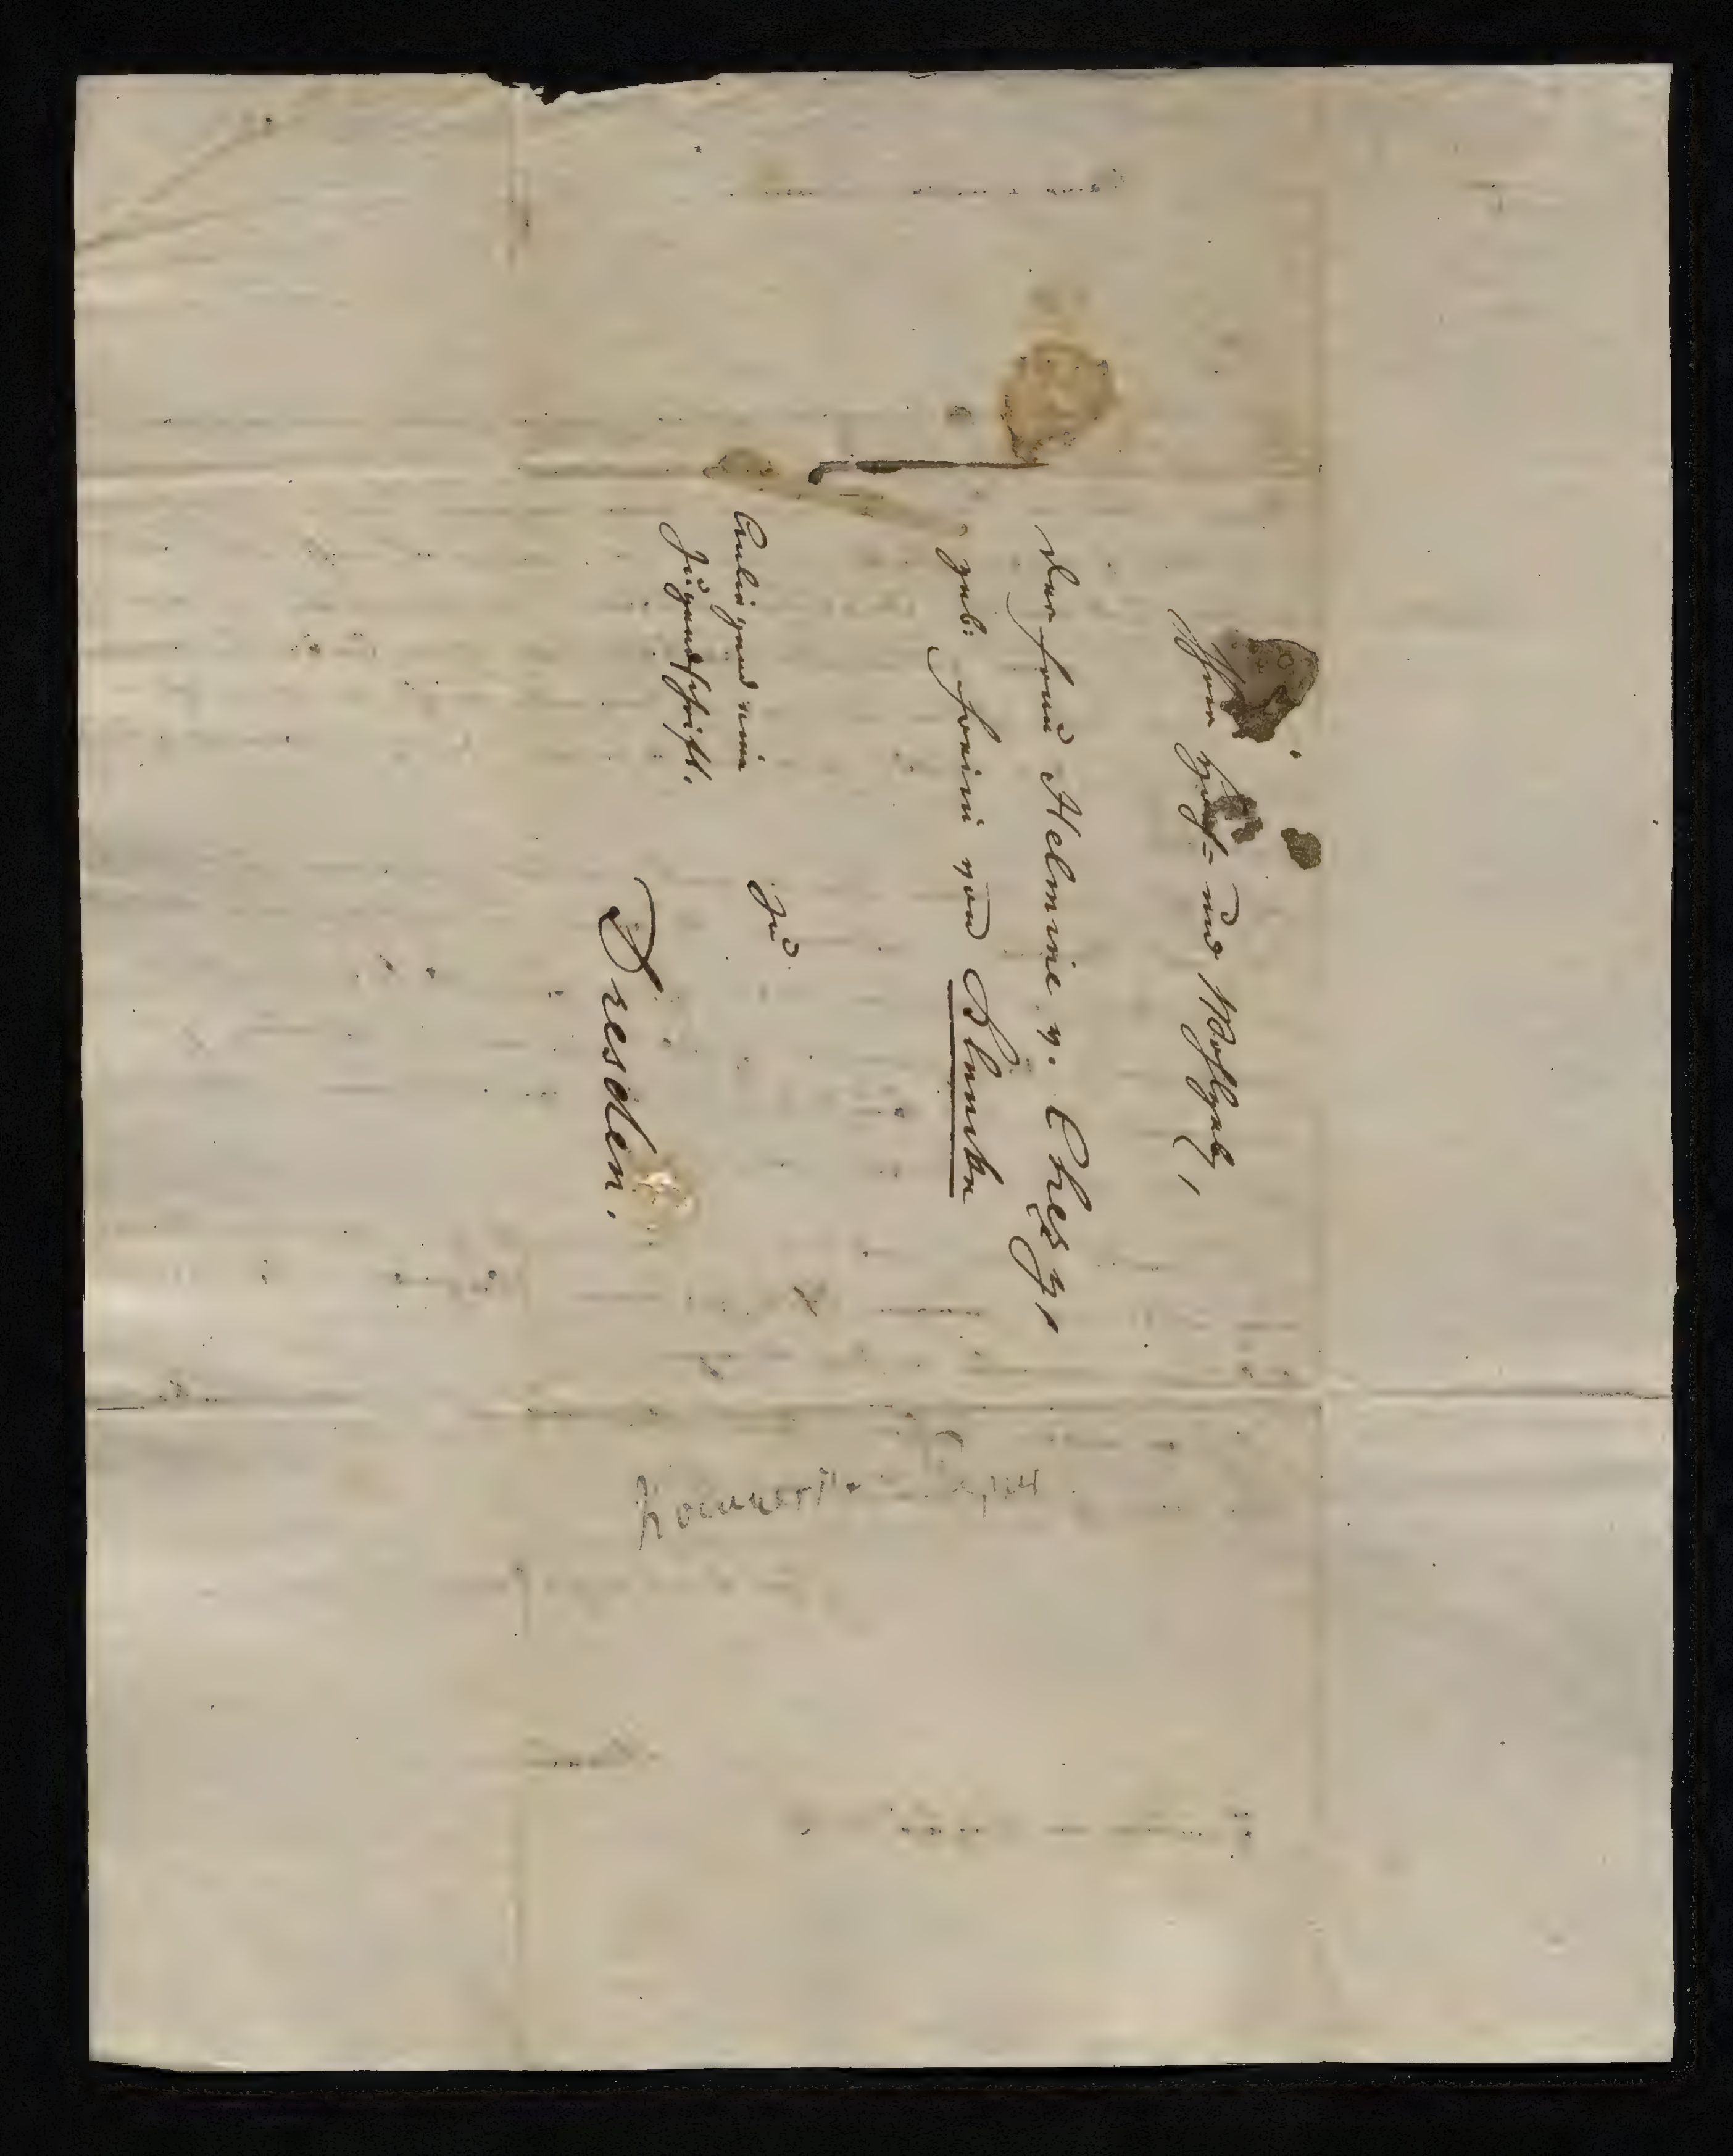 Ihrer Hoch- und Wohlgeb,
der Frau Helmine v. Chezy,
geb: Freiin von Klenke
zu
Dresden.
Anliegend eine
Jugendschrift.